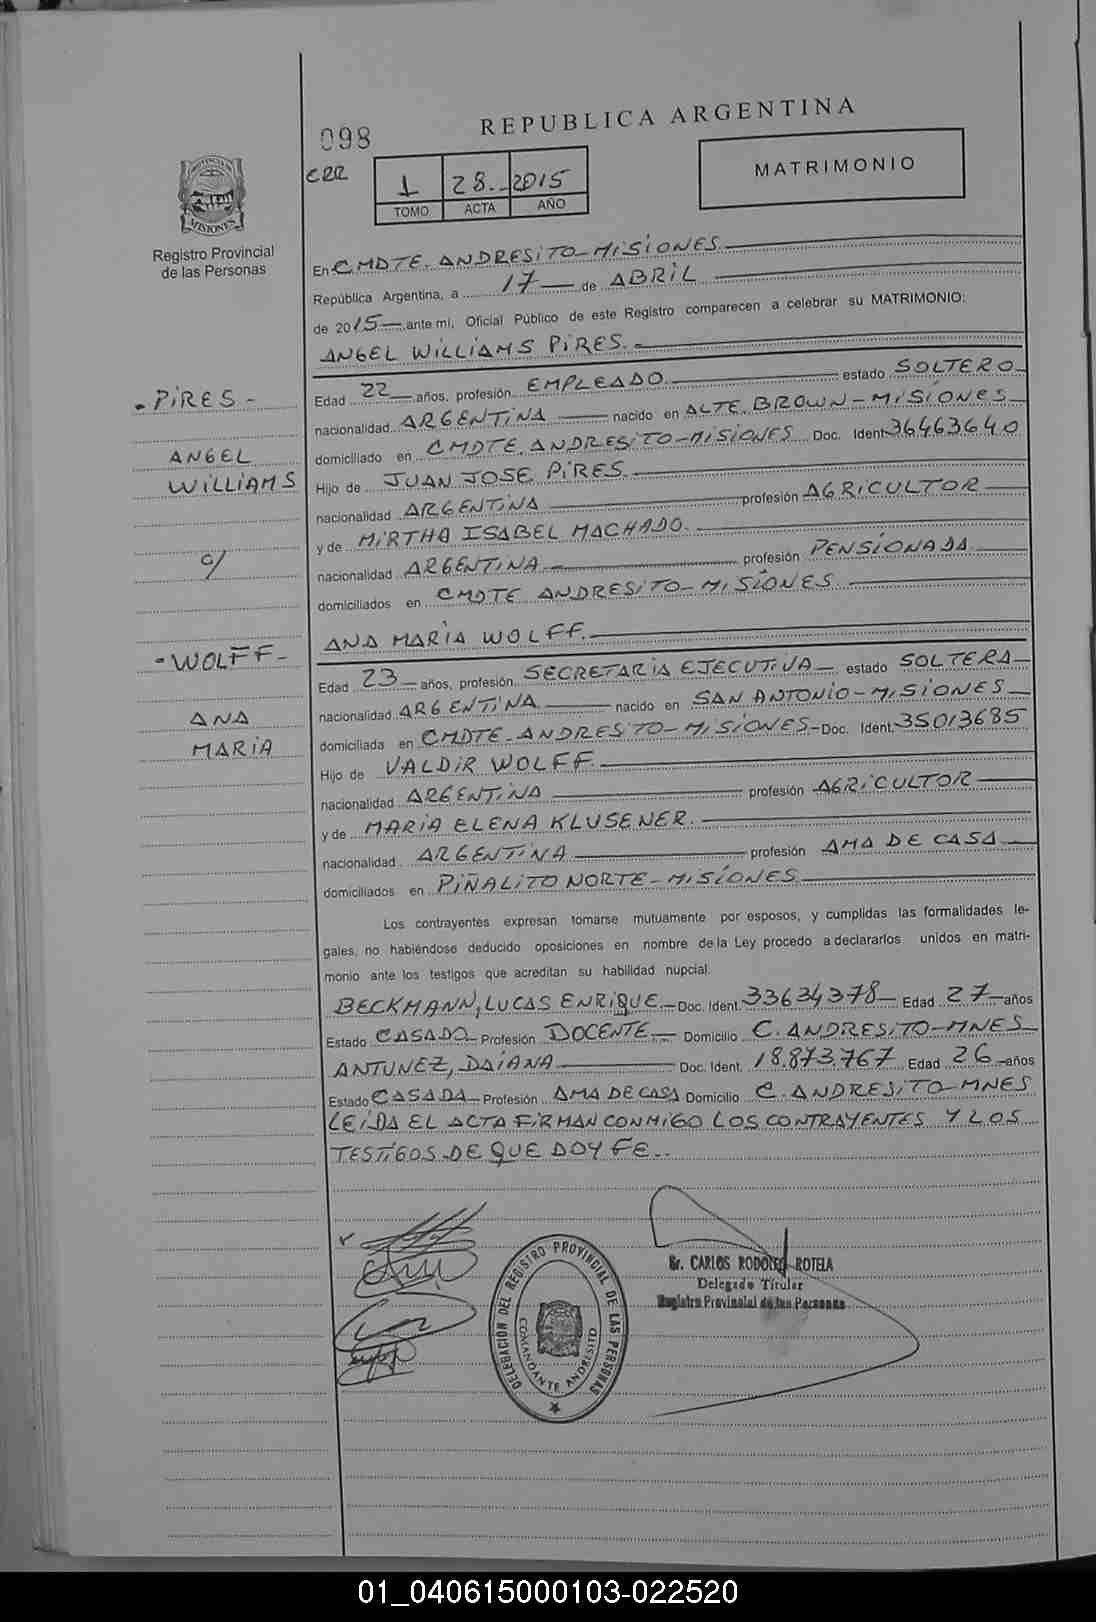 REPUBLICA ARGENTINA
098
CRR
1 28.- 2015
TOMO ACTA AÑO
MATRIMONIO
PROVINCIA DE
MISIONES
Registro Provincial
de las Personas
En CMDTE. ANDRESITO-MISIONES
República Argentina, a 17 de ABRIL
de 2015 ante mi, Oficial Público de este Registro comparecen a celebrar su MATRIMONIO:
ANGEL WILLIAMS PIRES.-
Edad 22 años, profesión EMPLEADO. estado SOLTERO
nacionalidad ARGENTINA nacido en ALTE. BROWN-MISIONES
domiciliado en CMDTE. ANDRESITO-MISIONES Doc. Ident. 36463640
Hijo de JUAN JOSE PIRES.
nacionalidad ARGENTINA profesión AGRICULTOR
y de MIRTHA ISABEL MACHADO.
nacionalidad ARGENTINA profesión PENSIONADA
domiciliados en CMDTE ANDRESITO-MISIONES
ANA MARIA WOLFF.
Edad 23 años, profesión SECRETARIA EJECUTIVA estado SOLTERA
nacionalidad ARGENTINA nacido en SAN ANTONIO-MISIONES
domiciliada en CMDTE. ANDRESITO-MISIONES-Doc. Ident. 35013685
Hijo de VALDIR WOLFF.
nacionalidad ARGENTINA profesión AGRICULTOR
y de MARIA ELENA KLUSENER.
nacionalidad ARGENTINA profesión AMA DE CASA
domiciliados en PIÑALITO NORTE-MISIONES
- PIRES -
ANGEL
WILLIAMS
c/
- WOLFF -
ANA
MARIA
Los contrayentes expresan tomarse mutuamente por esposos, y cumplidas las formalidades le-
gales, no habiéndose deducido oposiciones en nombre de la Ley procedo a declararlos unidos en matri-
monio ante los testigos que acreditan su habilidad nupcial.
BECKMANN, LUCAS ENRIQUE.-Doc. Ident. 33634378- Edad 27 años
Estado CASADO Profesión DOCENTE Domicilio C. ANDRESITO-MNES
ANTUNEZ, DAIANA Doc. Ident. 18.873.767 Edad 26 años
Estado CASADA Profesión AMA DE CASA Domicilio C. ANDRESITO-MNES
LEIDA EL ACTA FIRMAN CONMIGO LOS CONTRAYENTES Y LOS
TESTIGOS-DE QUE DOY FE..
DELEGACION DEL REGISTRO PROVINCIAL DE LAS PERSONAS
COMANDANTE ANDRESITO
Sr. CARLOS RODOLFO ROTELA
Delegado Titular
Registro Provincial de las Personas
01_040615000103-022520